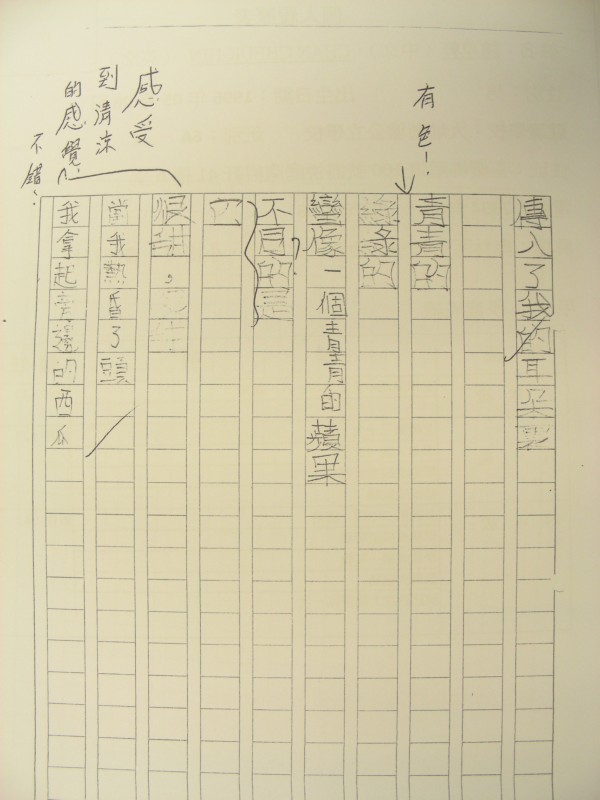 傳入了我的耳朵
有色!
青青的
綠綠的
蠻像一個青青的蘋果
不同的是
很甜,
當我熱昏了頭
我拿起旁邊的西瓜
感受
到清涼
的感覺,
不錯!